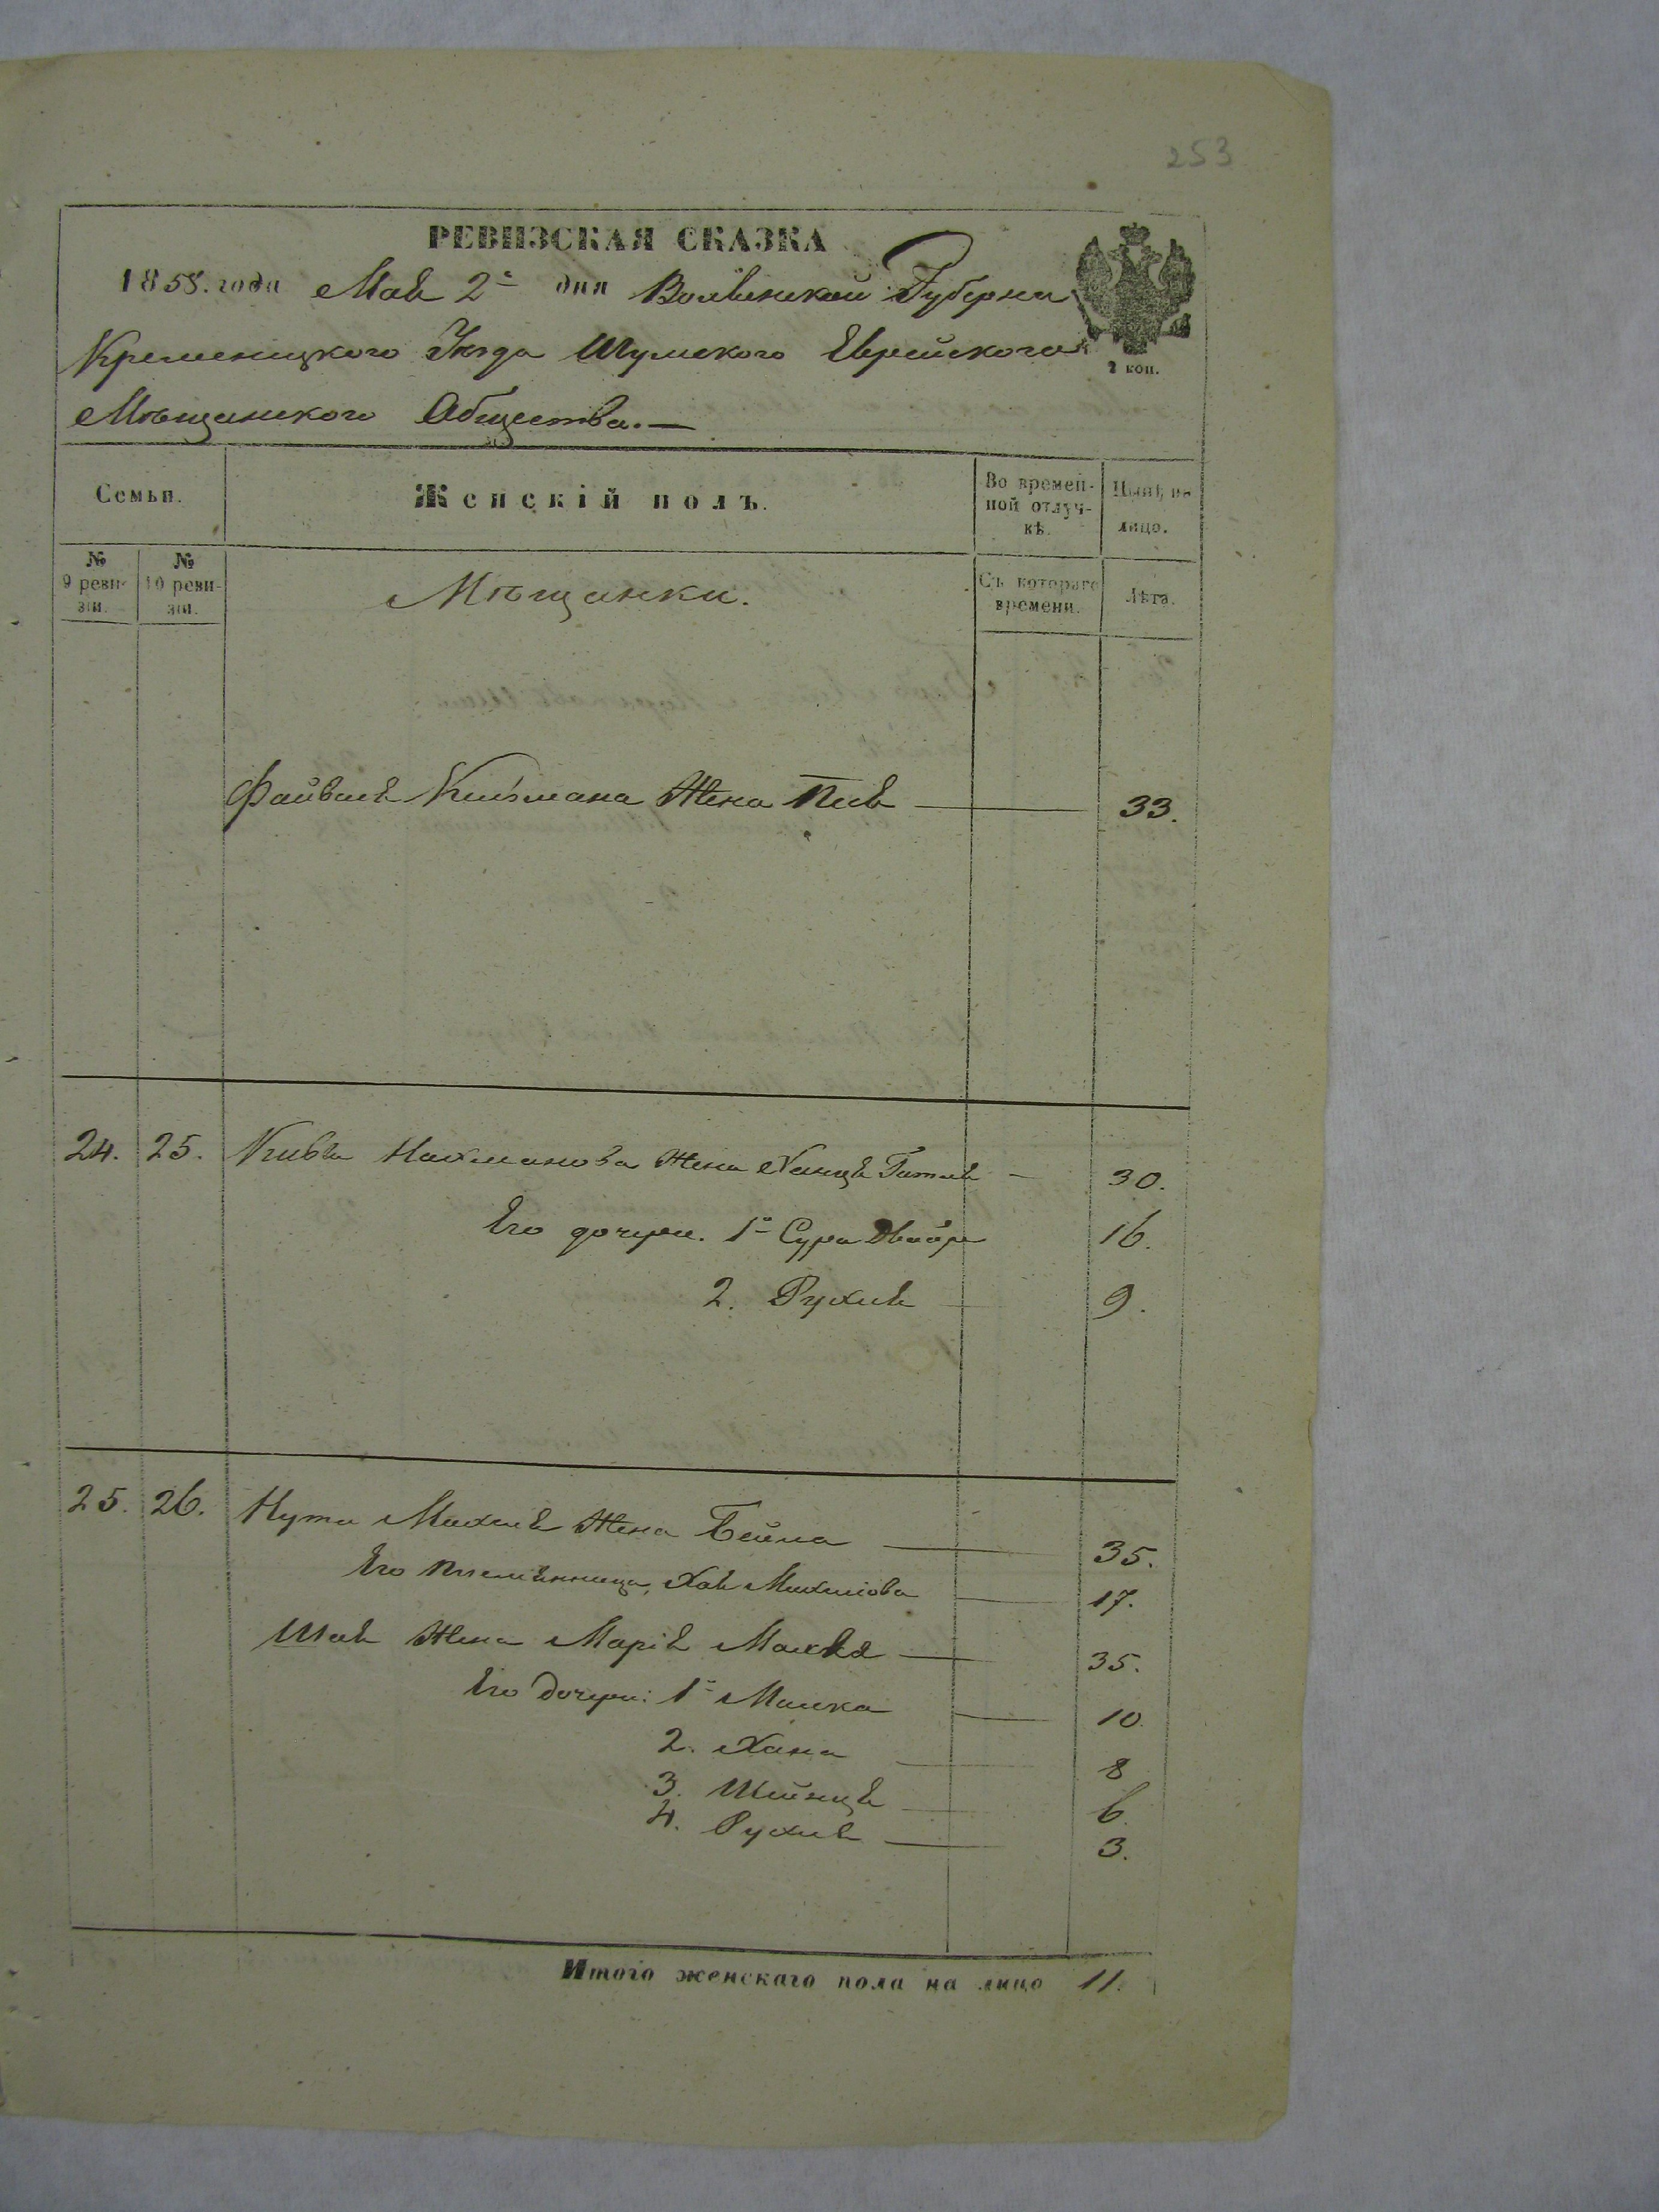 253
РЕВИЗСКАЯ СКАЗКА
1858. года Мая 2го дня Волынской Губернии
Кременецкого Уѣзда Шумского Еврейского
2 коп.
Мѣщанского Общества.—
Семьи.
Женскій полъ.
Во времен-
ной отлуч-
кѣ.
Нынѣ на
лицо.
№
9 реви-
зіи.
№
10 реви-
зіи.
Мѣщанки.
Съ котораго
времени.
Лѣта.
Файвеля Кельмана Жена Пея — 33.
24. 25. Кивы Нахманова Жена Ханця Гитля — 30.
Его дочери. 1я Сура Двойра 16.
2. Рухля 9.
25. 26. Нута Махеля Жена Бейла — 35.
Его племянница Хая Махелова 17.
Шая Жена Марія Малка — 35.
Его дочери: 1я Малка 10.
2. Хана 8
3. Шейнця 6.
4. Рухля — 3.
Итого женскаго пола на лицо 11.